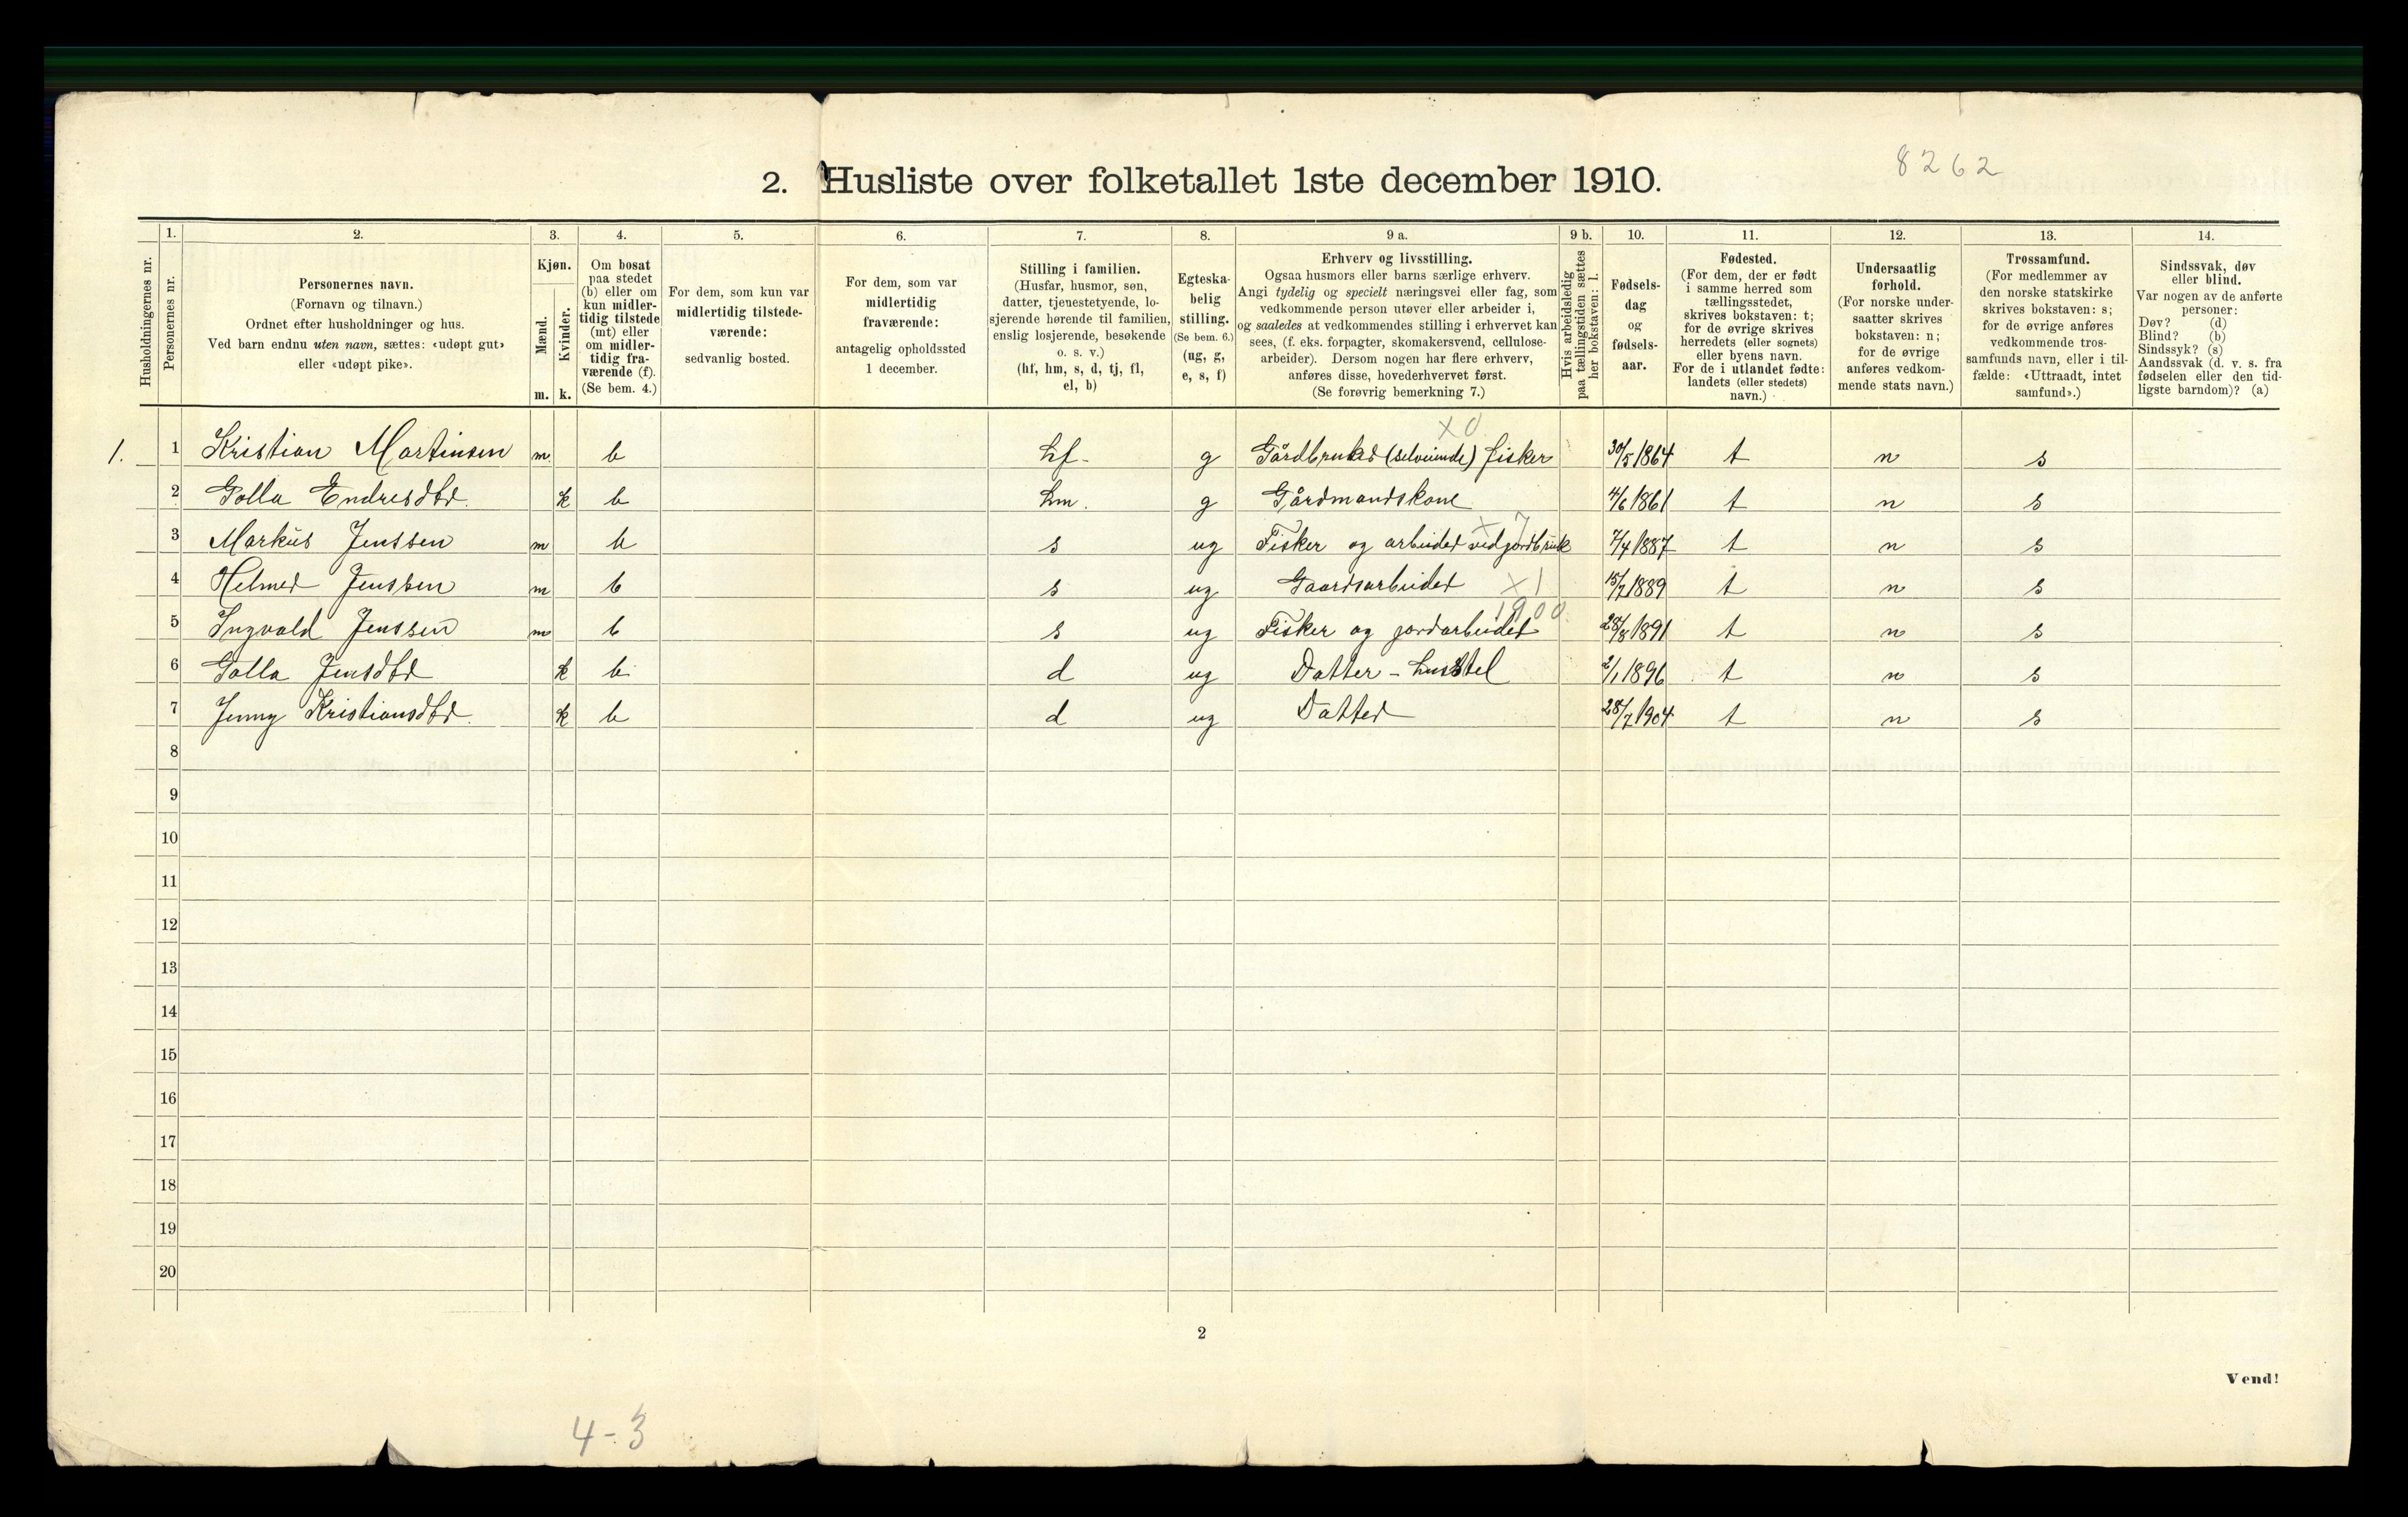 8262
2. Husliste over folketallet 1ste december 1910.
Husholdningernes nr.
1.
Personernes nr.
2.
Personernes navn.
(Fornavn og tilnavn.)
Ordnet efter husholdninger og hus.
Ved barn endnu uten navn, sættes: «udøpt gut»
eller «udøpt pike».
3.
Kjøn.
Mænd.
Kvinder.
m. k.
4.
Om bosat
paa stedet
(b) eller om
kun midler-
tidig tilstede
(mt) eller
om midler-
tidig fra-
værende (f).
(Se bem. 4.)
5.
For dem, som kun var
midlertidig tilstede-
værende:
sedvanlig bosted.
6.
For dem, som var
midlertidig
fraværende:
antagelig opholdssted
1 december.
7.
Stilling i familien.
(Husfar, husmor, søn,
datter, tjenestetyende, lo-
sjerende hørende til familien,
enslig losjerende, besøkende
o. s. v.)
(hf, hm, s, d, tj, fl,
el, b)
8.
Egteska-
belig
stilling.
(Se bem. 6.)
(ug, g,
e, s, f)
9 a.
Erhverv og livsstilling.
Ogsaa husmors eller barns særlige erhverv.
Angi tydelig og specielt næringsvei eller fag, som
vedkommende person utøver eller arbeider i,
og saaledes at vedkommendes stilling i erhvervet kan
sees, (f. eks. forpagter, skomakersvend, cellulose-
arbeider). Dersom nogen har flere erhverv,
anføres disse, hovederhvervet først.
(Se forøvrig bemerkning 7.)
9 b.
Hvis arbeidsledig
paa tællingstiden sættes
her bokstaven: l.
10.
Fødsels-
dag
og
fødsels-
aar.
11.
Fødested.
(For dem, der er født
i samme herred som
tællingsstedet,
skrives bokstaven: t;
for de øvrige skrives
herredets (eller sognets)
eller byens navn.
For de i utlandet fødte:
landets (eller stedets)
navn.)
12.
Undersaatlig
forhold.
(For norske under-
saatter skrives
bokstaven: n;
for de øvrige
anføres vedkom-
mende stats navn.)
13.
Trossamfund.
(For medlemmer av
den norske statskirke
skrives bokstaven: s;
for de øvrige anføres
vedkommende tros-
samfunds navn, eller i til-
fælde: «Uttraadt, intet
samfund».)
14.
Sindssvak, døv
eller blind.
Var nogen av de anførte
personer:
Døv? (d)
Blind? (b)
Sindssyk? (s)
Aandssvak (d. v. s. fra
fødselen eller den tid-
ligste barndom)? (a)
x0
1. 1 Kristian Martinsen m. b hf- g Gårdbruker (selveiende) fisker 30/5 1864 t n s
2 Golla Endresdtr. k b hm. g Gårdmandskone 4/6 1861 t n s
x 7
3 Markus Jenssen m b s ug Fisker og arbeider ved jordbruk 7/4 1887 t n s
4 Helmer Jenssen m b s ug Gaardsarbeider x1 15/7 1889 t n s
1900
5 Ingvald Jenssen m b s ug Fisker og jordarbeider 28/8 1891 t n s
6 Golla Jensdtr k b d ug Datter - husstel 2/1 1896 t n s
7 Jenny Kristiansdtr. k b d ug Datter 28/7 1904 t n s
8
9
10
11
12
13
14
15
16
17
18
19
20
2
Vend!
4-3